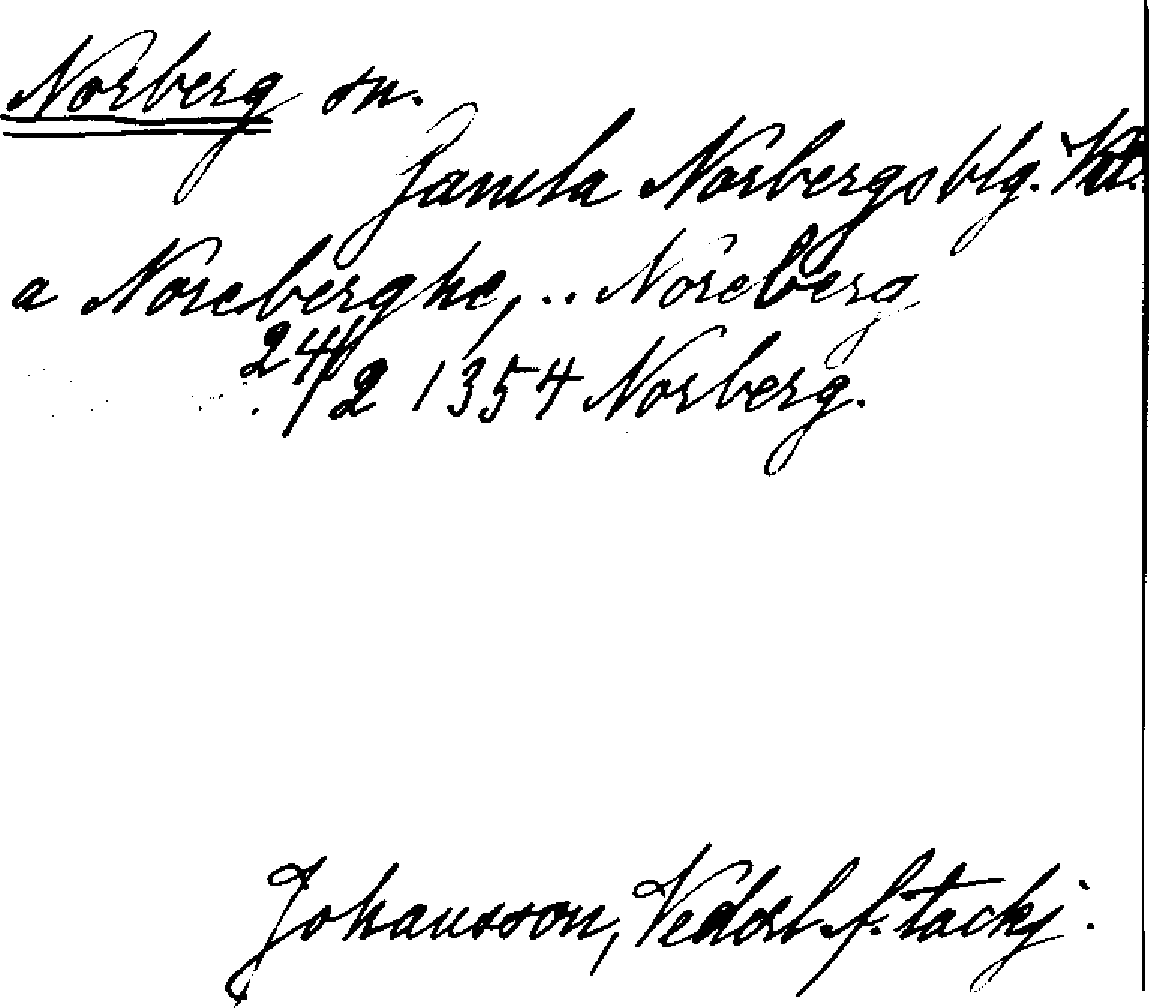 Norberg sn.
Gamla Norbergs blg. Vstm.
a Noreberghe, .. Noreberg
24/2 1354 Norberg.
Johansson, Vederl. f. tackj.